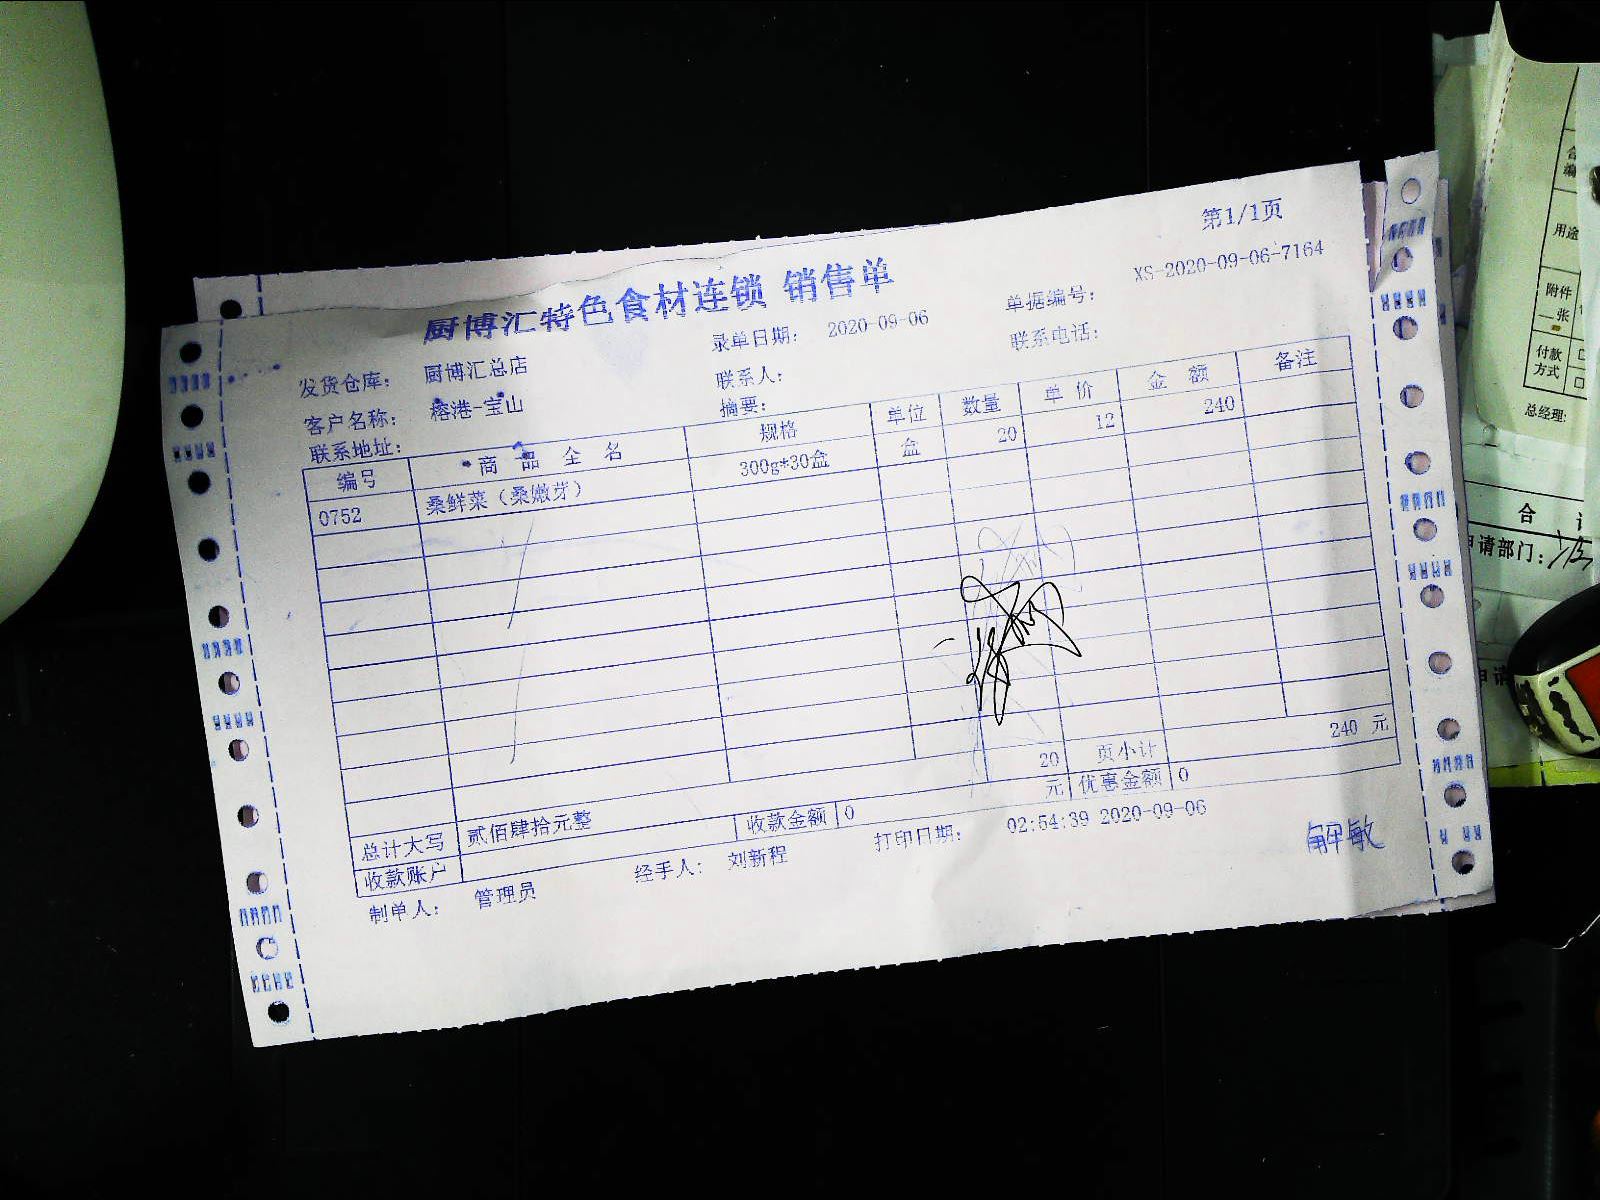 第1/1页
厨博汇特色食材连锁 销售单
发货仓库: 厨博汇总店 录单日期: 2020-09-06 单据编号: XS-2020-09-06-7164
客户名称: 榕港-宝山 联系人: 联系电话:
联系地址: 摘要:
编号 商品全名 规格 单位 数量 单价 金额 备注
0752 桑鲜菜(桑嫩芽) 300g*30盒 盒 20 12 240
20 页小计 240 元
总计大写 贰佰肆拾元整 收款金额 0 元 优惠金额 0
收款账户
制单人: 管理员 经手人: 刘新程 打印日期: 02:54:39 2020-09-06
解敏
用途
附件
一张
付款
方式
总经理:
合
申请部门:
申请